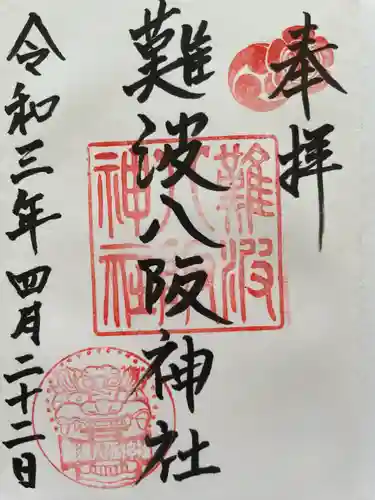 奉拝
難波八阪神社
令和三年四月二十二日
難波
八阪
神社